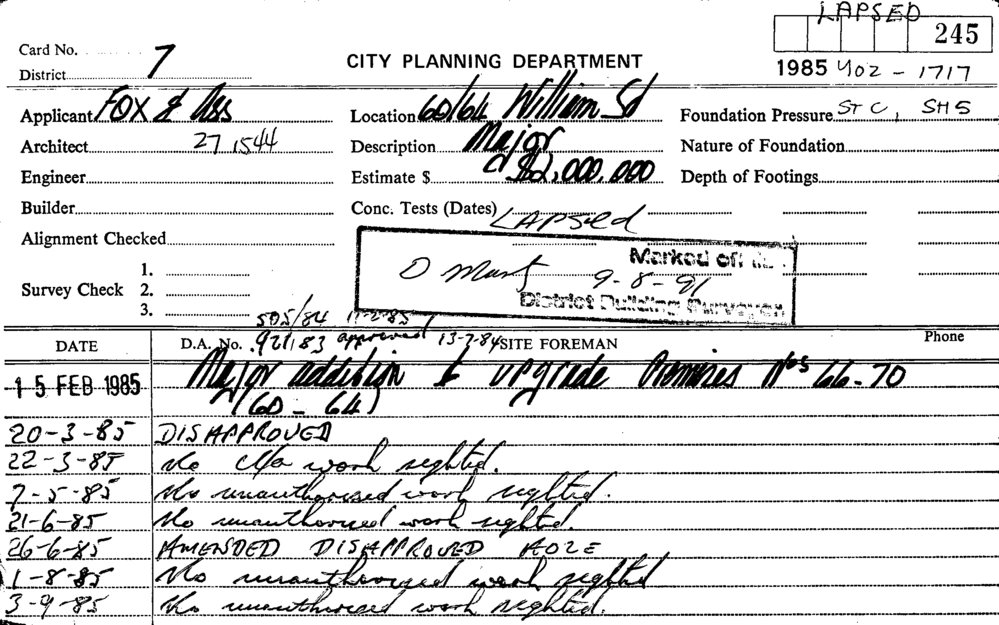 LAPSED
245
Card No.
District 7
CITY PLANNING DEPARTMENT
1985 402 - 1717
Applicant FOX & Ass
Location 60/64 William St
Foundation Pressure ST C, SH5
Architect 27 1544
Description Major
Nature of Foundation
Engineer
Estimate $ $2,000,000
Depth of Footings
Builder
Conc. Tests (Dates) LAPSED
Alignment Checked
Marked off
Survey Check 1.
2.
3.
D 9-8-91
District Building Surveyor
505/84 11-2-85
DATE
D.A. No. 921/83 approved 13-7-84 SITE FOREMAN
Phone
15 FEB 1985 Major addition & upgrade Premises Nos 66-70
(60-64)
20-3-85 DISAPPROVED
22-3-85 No work sighted.
7-5-85 No unauthorised work sighted.
21-6-85 No unauthorised work sighted.
26-6-85 AMENDED DISAPPROVED
1-8-85 No unauthorised work sighted
3-9-85 No unauthorised work sighted.